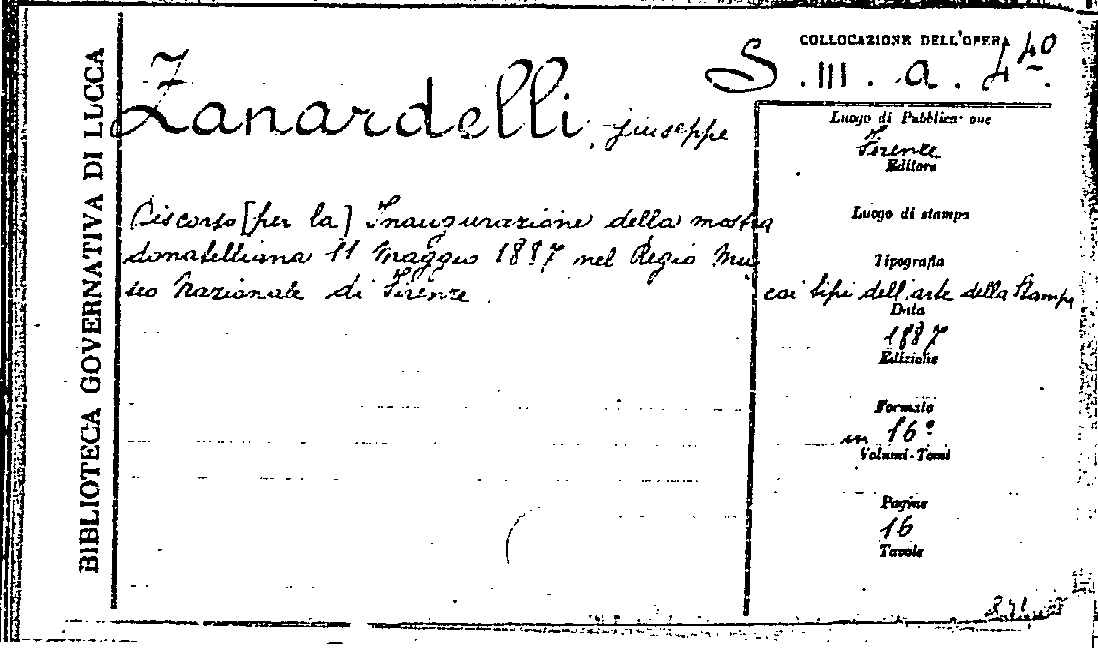 BIBLIOTECA GOVERNATIVA DI LUCCA
COLLOCAZIONE DELL'OPERA
S. III. a. 4 40
Zanardelli, Giuseppe
Discorso [per la] Inaugurazione della mostra
donatelliana 11 Maggio 1887 nel Regio Mu
seo Nazionale di Firenze
Luogo di Pubblicazione
Firenze
Editore
Luogo di stampa
Tipografia
coi tipi dell'arte della Stampa
Data
1887
Edizione
Formato
in 16°
Volumi-Tomi
Pagine
16
Tavole